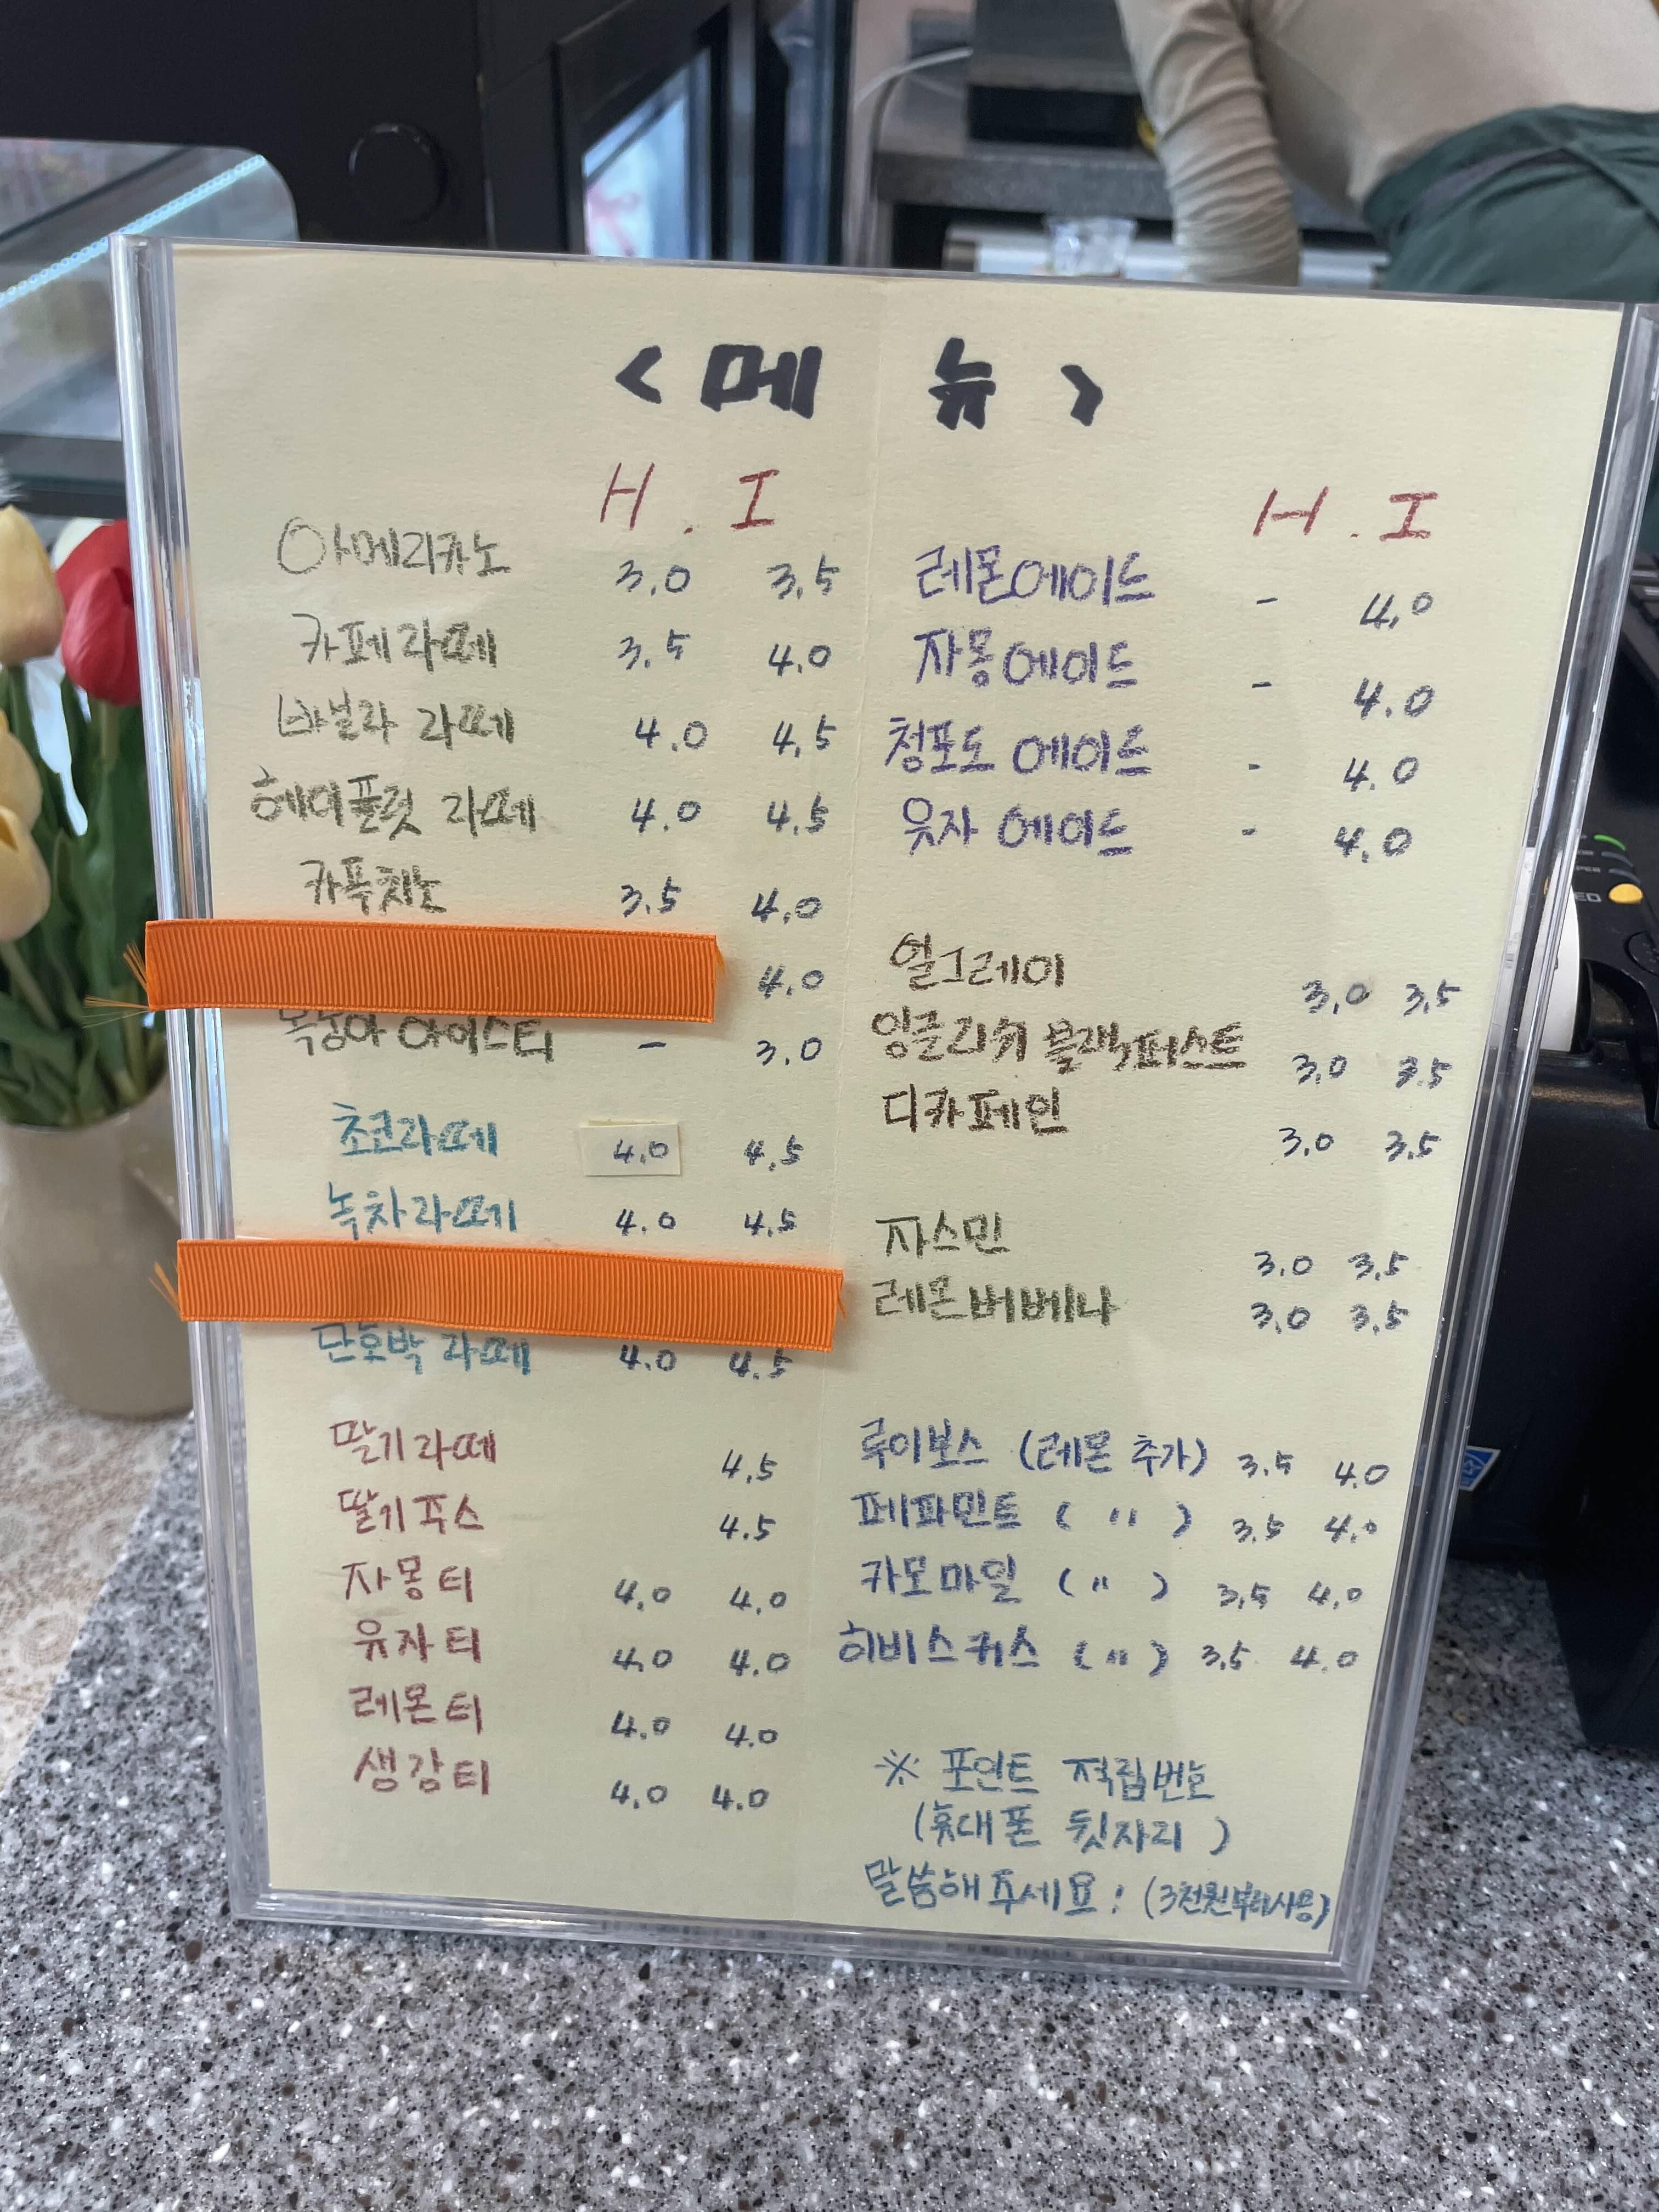 < 메 뉴 >
H . I
아메리카노 3.0 3.5
카페라떼 3.5 4.0
바닐라 라떼 4.0 4.5
헤이즐럿 라떼 4.0 4.5
카푸치노 3.5 4.0
4.0
복숭아 아이스티 - 3.0
초코라떼 4.0 4.5
녹차라떼 4.0 4.5
단호박 라떼 4.0 4.5
딸기라떼 4.5
딸기쥬스 4.5
자몽티 4.0 4.0
유자티 4.0 4.0
레몬티 4.0 4.0
생강티 4.0 4.0
H . I
레몬에이드 - 4.0
자몽에이드 - 4.0
청포도 에이드 - 4.0
유자 에이드 - 4.0
얼그레이 3.0 3.5
잉글리쉬 블랙퍼스트 3.0 3.5
디카페인 3.0 3.5
자스민 3.0 3.5
레몬버베나 3.0 3.5
루이보스 (레몬 추가) 3.5 4.0
페파민트 ( " ) 3.5 4.0
카모마일 ( " ) 3.5 4.0
히비스커스 ( " ) 3.5 4.0
※ 포인트 적립번호
(휴대폰 뒷자리 )
말씀해주세요! (3천원부터사용)